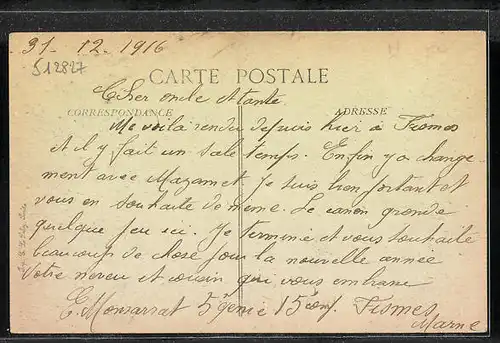 31. 12. 1916
512827
CARTE POSTALE
Cher oncle et tante
CORRESPONDANCE
ADRESSE
Me voilà rendu depuis hier à Fismes
et il y fait un sale temps. Enfin y a change-
ment avec Mazamet. Je suis bien portant et
vous en souhaite de meme. Le canon gronde
quelque peu ici. Je termine et vous souhaite
beaucoup de chose pour la nouvelle année
Votre neveu et cousin qui vous embrasse
E. Monsarrat 5e genie 15e Fismes
Marne